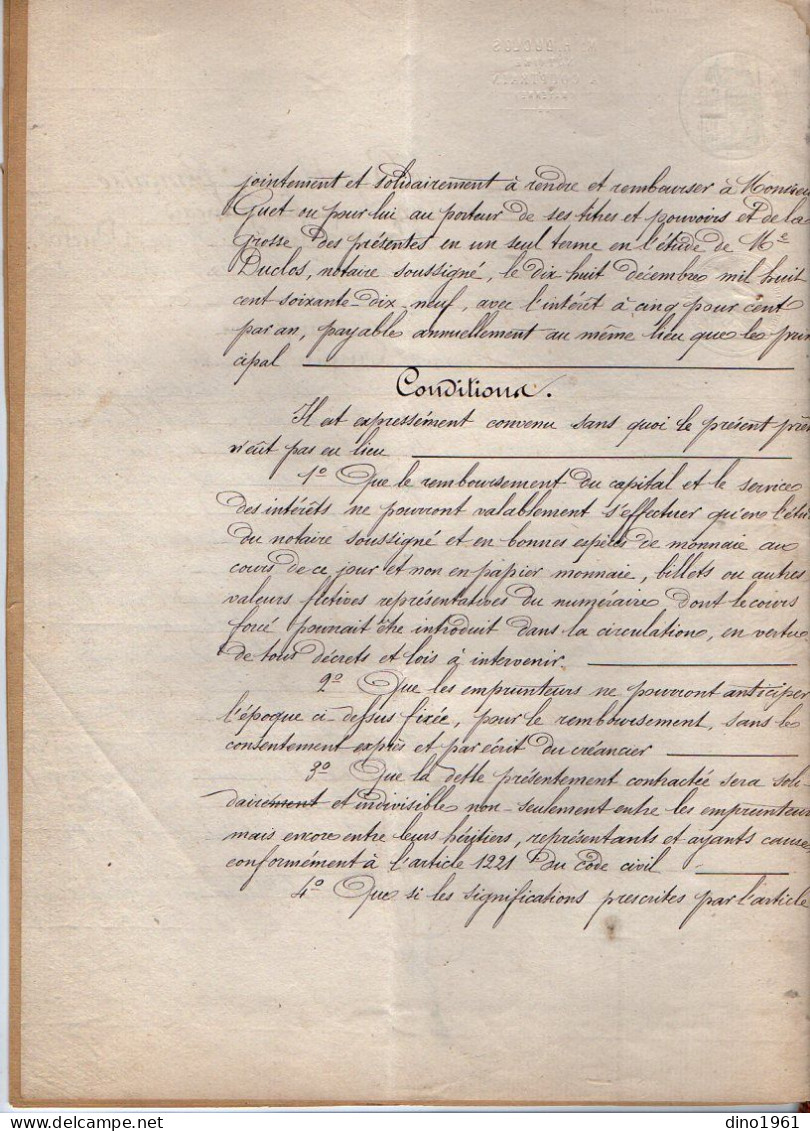 jointement et solidairement à rendre et rembourser à Monsieur
Guet ou pour lui au porteur de ses titres et pouvoirs et de la
Grosse des présentes en un seul terme en l'étude de Mᵉ
Duclos, notaire soussigné, le dix huit décembre mil huit
cent soixante-dix neuf, avec l'intérêt à cinq pour cent
par an, payable annuellement au même lieu que le prin
cipal
Conditions.
Il est expressément convenu sans quoi le présent prêt
n'eût pas eu lieu
1º Que le remboursement du capital et le service
des intérêts ne pourront valablement s'effectuer qu'en l'étu
du notaire soussigné et en bonnes espèces de monnaie au
cours de ce jour et non en papier monnaie, billets ou autres
valeurs fictives représentatives du numéraire dont le cours
forcé pourrait être introduit dans la circulation, en vertu
de tous décrets et lois à intervenir.
2º Que les emprunteurs ne pourront anticiper
l'époque ci-dessus fixée, pour le remboursement, sans le
consentement exprès et par écrit du créancier
3º Que la dette présentement contractée sera soli-
dairement et indivisible non-seulement entre les emprunteurs
mais encore entre leurs héritiers, représentants et ayants cause
conformément à l'article 1221 du code civil
4º Que si les significations prescrites par l'article
dino1961